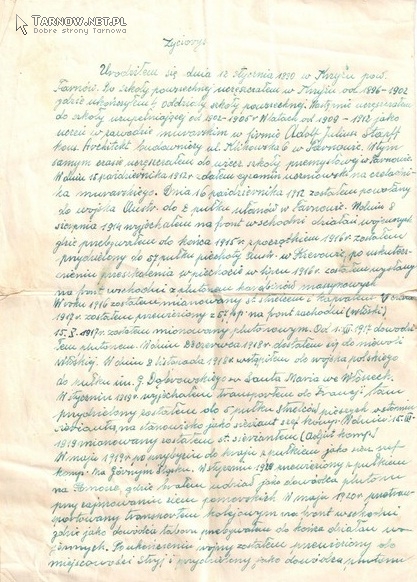 TARNOW.NET.PL
Dobre strony Tarnowa
Życiorys
Urodziłem się dnia 12 stycznia 1890 w Krzyżu pow.
Tarnów. Do szkoły powszechnej uczęszczałem w Krzyżu od 1896-1902
gdzie ukończyłem 4 oddziały szkoły powszechnej. Następnie uczęszczałem
do szkoły uzupełniającej od 1902-1905 r W latach od 1909 - 1912 jako
uczeń w zawodzie murarskim w firmie Adolf Julius Stapff
konc. Architekt budowniczy ul. Klikowska 6 w Tarnowie. W tym
samym czasie uczęszczałem do szkoły przemysłowej w Tarnowie
W dniu 15 października 1912 r zdałem egzamin uczniowski na czeladni-
ka murarskiego. Dnia 16 października 1912 zostałem powołany
do wojska Austr. do 2 pułku ułanów w Tarnowie. W dniu 8
sierpnia 1914 wyjechałem na front wschodni działań wojennych
gdzie przebywałem do końca 1915 r z początkiem 1916 r. zostałem
przydzielony do 57 pułku piechoty Austr. po uskutecz-
nieniu przeszkolenia w piechocie w lipcu 1916 r. zostałem wysłany
na front wschodni z plutonem karabinów maszynowych
W roku 1916 zostałem mianowany st. strzelcem i kapralem
1917 r. zostałem przewieziony z 57 pp na front zachodni (włoski).
15.X.1917 r. zostałem mianowany plutonowym. Od 1.XII.1917 dowodzi-
łem plutonem. W dniu czerwca 1918 r. dostałem się do niewoli
Włoskiej. W dniu 8 listopada 1918 r. wstąpiłem do wojska polskiego
do pułku im. G. Dąbrowskiego w Santa Maria we Włoszech.
W styczniu 1919 r. wyjechałem transportem do Francji tam
przydzielony zostałem do 5. pułku Strzelców pieszych
na stanowisko jako sierżant szef komp. W dniu 15.III-
1919 mianowany zostałem st. sierżantem (Adjut komp.)
W maju 1919 r. po przybyciu do kraju z pułkiem jako szef
komp. na Górnym Śląsku. W styczniu 1920 przewieziony z pułkiem
na Pomorze, gdzie brałem udział jako dowódca plutonu
przy zajmowaniu ziem pomorskich. W maju 1920 r.
transportem kolejowym na front wschodni
gdzie jako dowódca taboru przebywałem do końca działań wo-
jennych. Po ukończeniu wojny zostałem przewieziony do
miejscowości Stryj i przydzielony jako dowódca plutonu